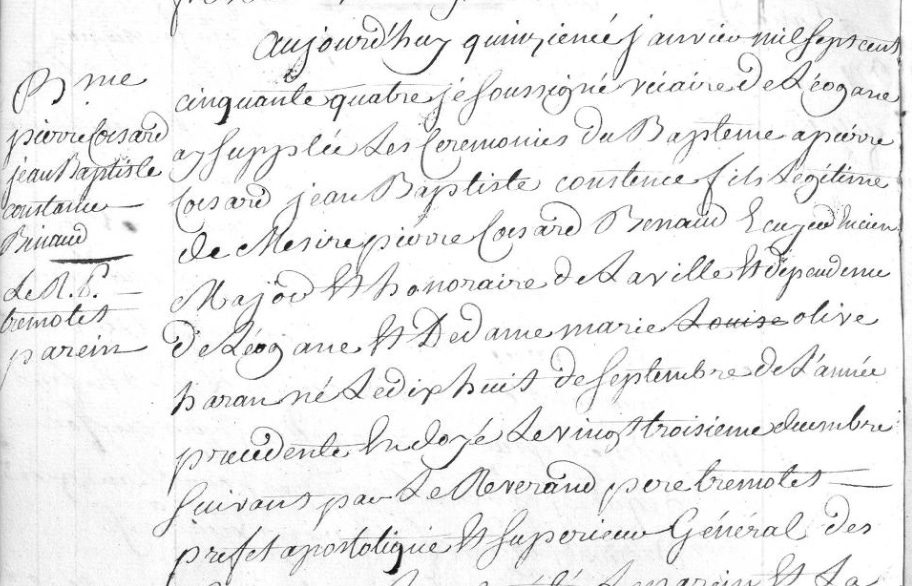 Bme
pierre Cæsard
jean Baptiste
constance
Binaud
Le R. P.
tremolet
parein
aujourd'huy quinzieme janvier mil sept cent
cinquante quatre je soussigné vicaire de Léogane
ay supplée Les Ceremonies du Bapteme a pierre
Cæsard jean Baptiste constence fils Légitime
de Mesire pierre Cæsard Benaud Ecuyer
Major Et honoraire de La ville Et dépendence
de Léogane Et De dame marie Louise olive
haran né Le dix huit de septembre de L'année
precedente Endoyé Le vingt troisieme decembre
suivant par Le Reverand pere tremolet
prefet apostolique Et superieur Général des
parein Et La